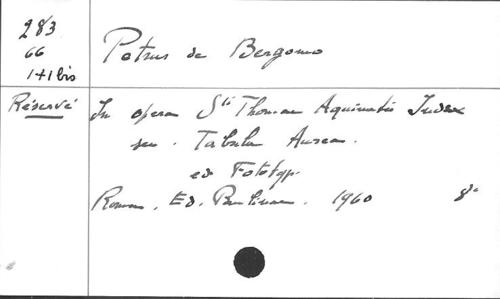 283
66
1+1 bis
Petrus de Bergomo
Réservé
In opera Sti Thomae Aquinatis Index
seu. Tabula Aurea.
ed Fototyp.
Romae. Ed. Paulinae. 1960 8°